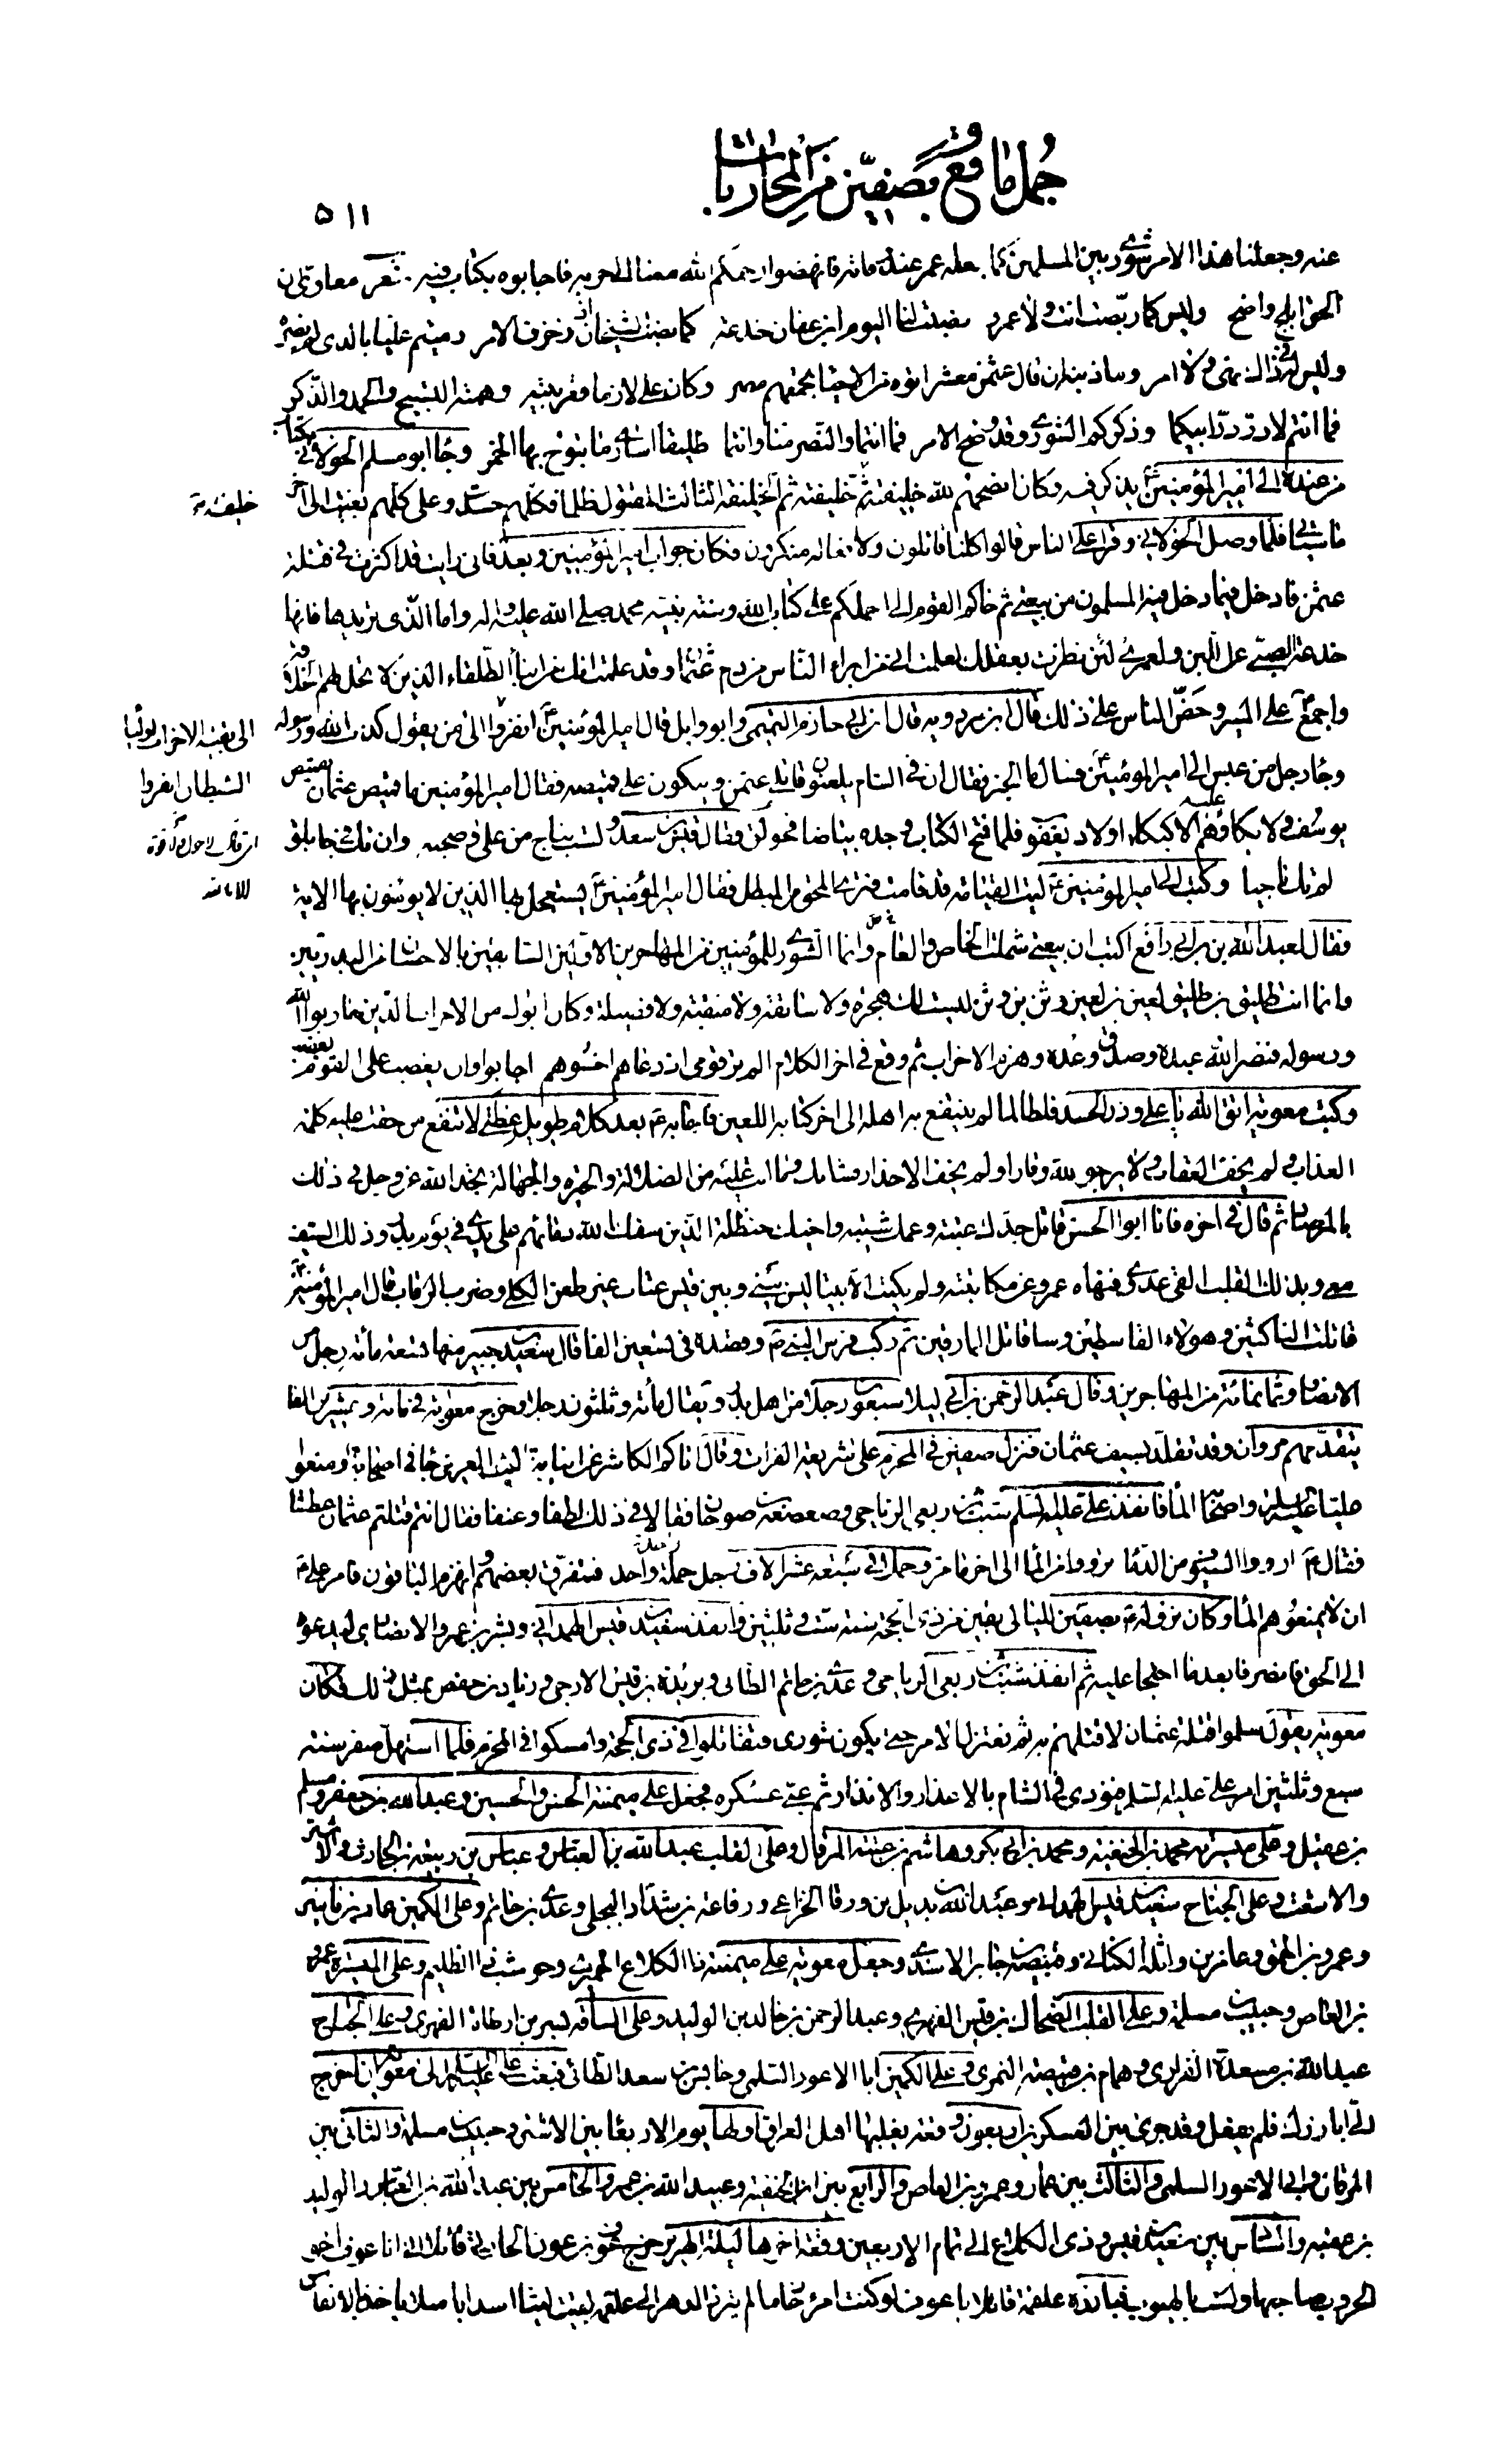 جمل ما وقع بصفين من المحاربات
٥١١
عنه وجعلنا هذا الامر شورى بين المسلمين كما جعله عمر عند وفاته فانهضوا رحمكم الله معنا الى حربه فاجابوه بكتاب فيه شعر معاوي ان
الحق ابلج واضح وليس كما ربصت انت ولا عمرو نصبت لنا اليوم ابن عفان خدعة كما نصب الشيخان اذ زخرف الامر رميتم عليا بالذى لم يضره
وليس له فى ذاك نهى ولا امر وما ذنبه ان نال عثمن معشر اتوه من الاحيا تجمعهم مصر وكان على لازما قعر بيته وهمته التسبيح والحمد والذكر
فما انتما لا در در ابيكما وذكركم الشورى وقد وضح الامر فما انتما والنصر منا وانتما طليقا اسارى ما تبوح بها الخمر وجا ابو مسلم الخولانى بكتاب
من عنده الى امير المؤمنين يذكر فيه وكان انصحهم لله خليفته ثم خليفة خليفته ثم الخليفة الثالث المقتول ظلما فكلهم حسدت وعلى كلهم بغيت الى اخره
خليفة
فلما وصل الخولانى وقرا على الناس قالوا كلنا قاتلون ولافعاله منكرون فكان جواب امير المؤمنين وبعد فانى رايت قد اكثرت فى قتلة
عثمن فادخل فيما دخل فيه المسلمون من بيعتى ثم حاكم القوم الى احملكم على كتاب الله وسنة نبيه محمد صلى الله عليه واله واما الذى تريدها فانها
خدعة الصبى عن اللبن ولعمرى لئن نظرت بعقلك لعلمت انى من ابراء الناس من دم عثمان وقد علمت انك من ابناء الطلقاء الذين لا تحل لهم الخلافة
واجمع على المسير وحض الناس على ذلك قال ابن مردويه قال ابن ابى حازم التميمى وابو وايل قال امير المؤمنين انفروا الى من يقول كذب الله ورسوله
الى بقية الاحزاب اولياء
الشيطان انفروا
وجاء رجل من عبس الى امير المؤمنين فسال ما الخبر فقال ان فى الشام يلعنون قاتلى عثمن ويبكون على قميصه فقال امير المؤمنين ما قميص عثمان بقميص
يوسف ولا بكاؤهم عليه الا كبكاء اولاد يعقوب فلما فتح الكتاب وجده بياضا فحولق وقال قيس بن سعد ولست بناج من على وصحبه وان تك فى جابلق
لم تك ناجيا وكتب الى امير المؤمنين ليت القيامة قد قامت فترى المحق من المبطل فقال امير المؤمنين يستعجل بها الذين لا يؤمنون بها الاية
فقال لعبد الله بن ابى رافع اكتب ان بيعتى شملت الخاص والعام وانما الشورى للمؤمنين من المهاجرين الاولين السابقين بالاحسان من البدريين
وانما انت طليق بن طليق لعين بن لعين وثن بن وثن ليست لك هجرة ولا سابقة ولا منقبة ولا فضيلة وكان ابوك من الاحزاب الذين حاربوا الله
ورسوله فنصر الله عبده وصدق وعده وهزم الاحزاب ثم وقع فى اخر الكلام الم تر قومى اذ دعاهم اخوهم اجابوا وان يغضب على القوم يغضبوا
وكتب معوية اتق الله يا على وذر الحسد فلطالما لم ينتفع به اهله الى اخر كتابه اللعين فاجابه بعد كلام طويل عظتى لا تنفع من حقت عليه كلمة
العذاب ولم يخف العقاب ولا يرجو لله وقارا ولم يخف له حذارا وشانك وما انت عليه من الضلالة والحيرة والجهالة تجد الله عز وجل فى ذلك
بالمرصاد ثم قال فى اخره فانا ابو الحسن قاتل جدك عتبة وعمك شيبة واخيك حنظلة الذين سفك الله دماءهم على يدى فى يوم بدر وذلك السيف
معى وبذلك القلب القى عدوى فنهاه عمرو عن مكاتبته ولم يكتب الا بيتا ليس بينى وبين قيس عتاب غير طعن الكلى وضرب الرقاب قال امير المؤمنين
قاتلت الناكثين وهولاء القاسطين وساقاتل المارقين ثم ركب فرس النبى وقصده فى تسعين الفا قال سعيد بن جبير منها تسعة مائة رجل من
الانصار وثمانمائة من المهاجرين وقال عبد الرحمن بن ابى ليلى سبعون رجلا من اهل بدر ويقال مائة وثلثون رجلا وخرج معوية فى مائة وعشرين الفا
يتقدمهم مروان وقد تقلد بسيف عثمان فنزل صفين فى المحرم على شريعة الفرات وقال اتاكم الكاشر عن انيابه ليث العرين جا فى اصحابه ومنعوا
عليا واصحابه الماء فانفذ على عليه السلم شبث بن ربعى الرياحى وصعصعة بن صوحان فقالا فى ذلك لطفا وعنفا فقال انتم قتلتم عثمان عطشا
فقال ارووا السيوف من الدماء ترووا من الماء الى اخر ما مر وحمل فى سبعة عشر الف رجل حملة رجل واحد فتفرق بعضهم وانهزم الباقون فامر على
ان لا يمنعوهم الماء وكان نزوله بصفين لليال بقين من ذى الحجة سنة ست وثلثين وانفذ سعيد بن قيس الهمدانى وبشر بن عمرو الانصارى ليدعوه
الى الحق فانصرفا بعدما احتجا عليه ثم انفذ شبث بن ربعى الرياحى وعدى بن حاتم الطائى ويزيد بن قيس الارحبى وزياد بن حفص بمثل ذلك فكان
معوية يقول سلموا قتلة عثمان لاقتلهم به ثم نعتزل الامر حتى يكون شورى فتقاتلوا فى ذى الحجة وامسكوا فى المحرم فلما استهل صفر سنة
سبع وثلثين امر على عليه السلم فنودى فى الشام بالاعذار والانذار ثم عبى عسكره فجعل على ميمنته الحسن والحسين وعبد الله بن جعفر ومسلم
بن عقيل وعلى ميسرته محمد بن الحنفية ومحمد بن ابى بكر وهاشم بن عتبة المرقال وعلى القلب عبد الله بن العباس وعباس بن ربيعة بن الحارث والاشتر
والاشعث وعلى الجناح سعيد بن قيس الهمدانى وعبد الله بن بديل بن ورقا الخزاعى ورفاعة بن شداد البجلى وعدى بن حاتم وعلى الكمين عمار بن ياسر
وعمرو بن الحمق وعامر بن واثلة الكنانى وقبيصة بن جابر الاسدى وجعل معوية على ميمنته ذا الكلاع الحميرى وحوشب ذا الظليم وعلى الميسرة عمرو
بن العاص وحبيب بن مسلمة وعلى القلب الضحاك بن قيس الفهرى وعبد الرحمن بن خالد بن الوليد وعلى الساقة بسر بن ارطاة الفهرى وعلى الجناح
عبد الله بن مسعدة الفزارى وهمام بن قبيصة النمرى وعلى الكمين ابا الاعور السلمى وحابس بن سعد الطائى فبعث على عليه السلم الى معوية ان اخرج
الى ابارزك فلم يفعل وقد جرى بين العسكرين اربعون وقعة يغلبها اهل العراق اولها يوم الاربعا بين الاشتر وحبيب بن مسلمة والثانى بين
المرقال وابى الاعور السلمى والثالث بين عمار وعمرو بن العاص والرابع بين ابن الحنفية وعبيد الله بن عمر والخامس بين عبد الله بن العباس والوليد
بن عقبة والسادس بين سعيد بن قيس وذى الكلاع الى تمام الاربعين وقعة اخرها ليلة الهرير خرج عوف بن عون الحارثى قائلا انى انا عوف اخو
الحروب صاحبها ولست بالهيوب فبارزه علقمة قائلا يا عوف لو كنت امرء حازما لم تبرز الدهر الى علقمة لقيت ليثا اسدا باسلا ياخذ بالانفاس